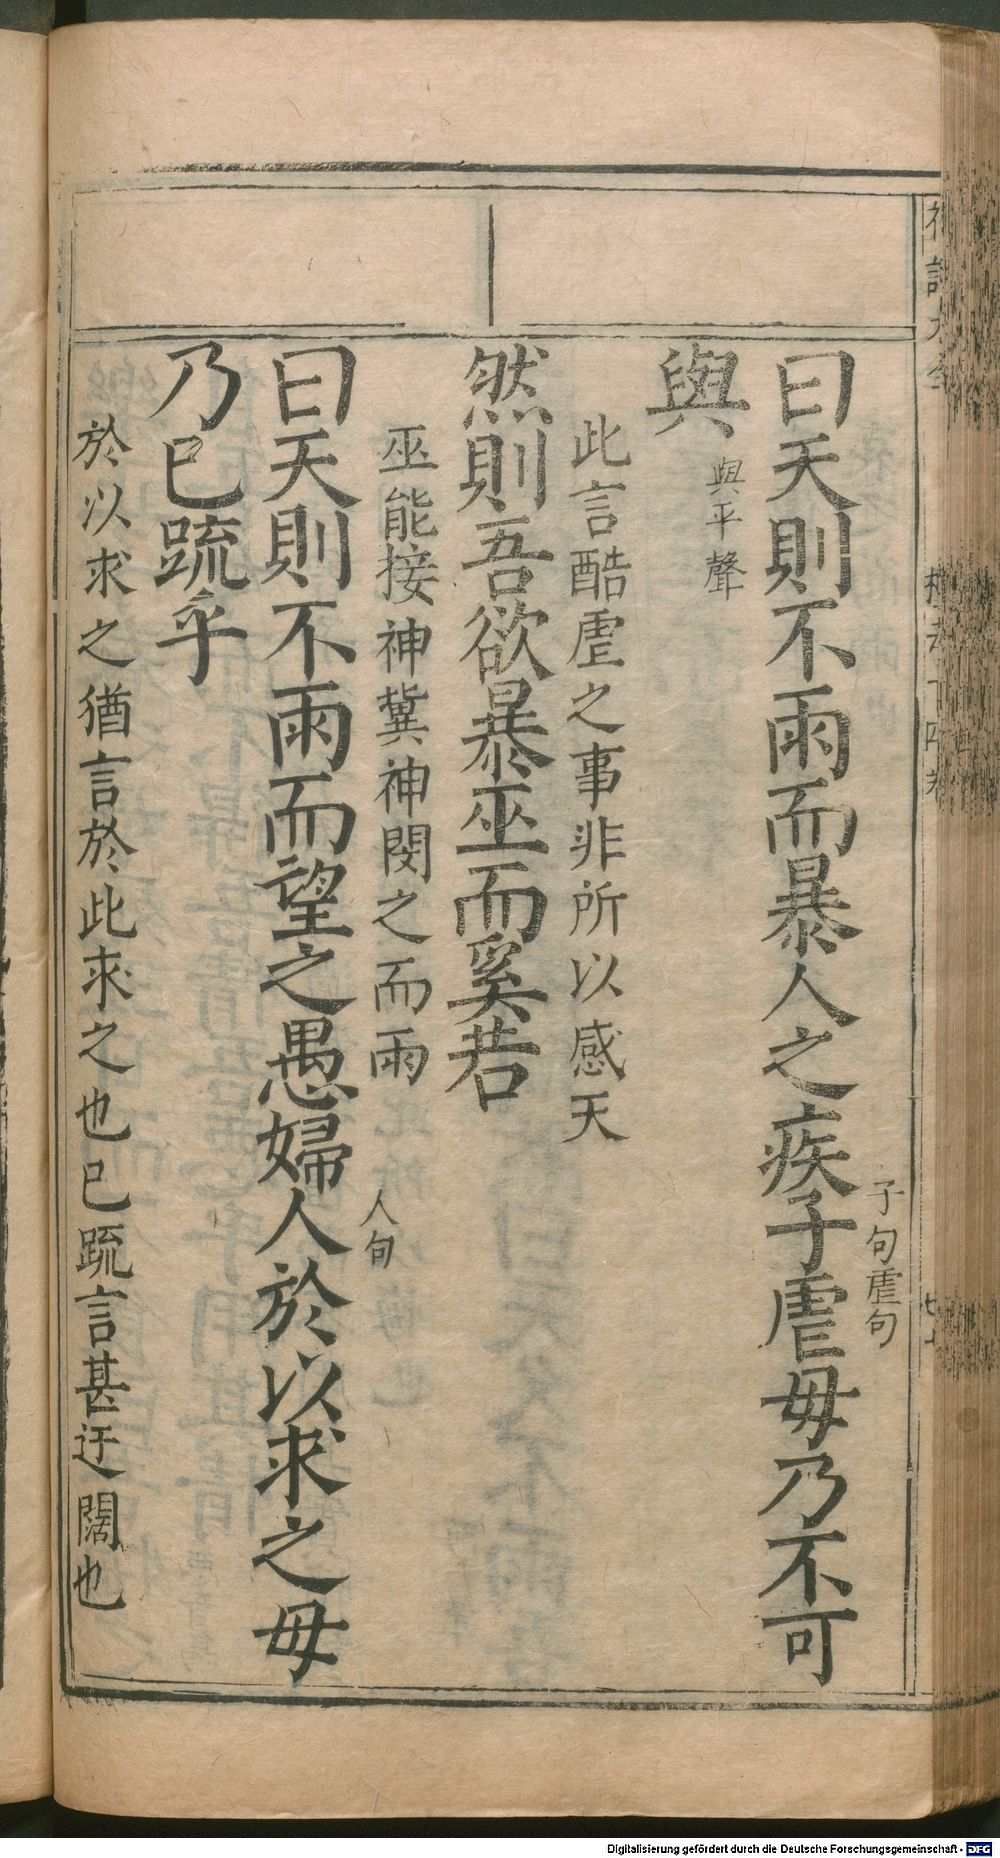 曰天則不雨而暴人之疾子虐毋乃不可
子句虐句
與
與平聲
此言酷虐之事非所以感天
然則吾欲暴巫而奚若
巫能接神冀神閔之而雨
曰天則不雨而望之愚婦人於以求之毋
人句
乃已疏乎
於以求之猶言於此求之也已疏言甚迂闊也
Digitalisierung gefördert durch die Deutsche Forschungsgemeinschaft - DFG